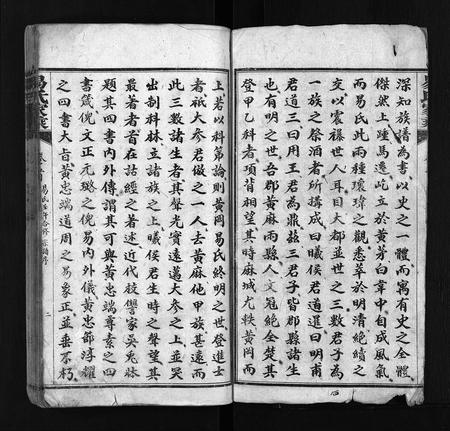 深知族譜為書以史之一體而寓有史之全體
傑然上踵馬遷屹立於黃芽白葦中自成風氣
而易氏此兩種瓌瑋之觀悉萃於明清絕續之
交以震襮世人耳目大都並世之三數君子為
一族之祭酒者所搆成曰曦侯君道暹曰明甫
君道三曰用王君為鼎茲三君子皆郡縣諸生
當有明之世吾郡黃麻兩縣人文冠絕全楚其
登甲乙科者項背相望其時麻城尤軼黃岡而
上若以科第論則黃岡易氏終明之世登進士
者祇大參君倣之一人去黃麻他甲族甚遠而
此三數諸生者其聲光實遠邁大參之上並突
出制科林立諸族之上曦侯君生時之聲望其
最著者首在詁經之著述近代校讐家吳兔牀
題其四書內外傳謂其可與黃忠端尊素之四
書箴倪文正元璐之倪易內外儀黃忠節淳耀
之四書大旨黃忠端道周之易象正並垂不朽
易氏宗譜
卷首 易氏壬午合修宗譜序 二